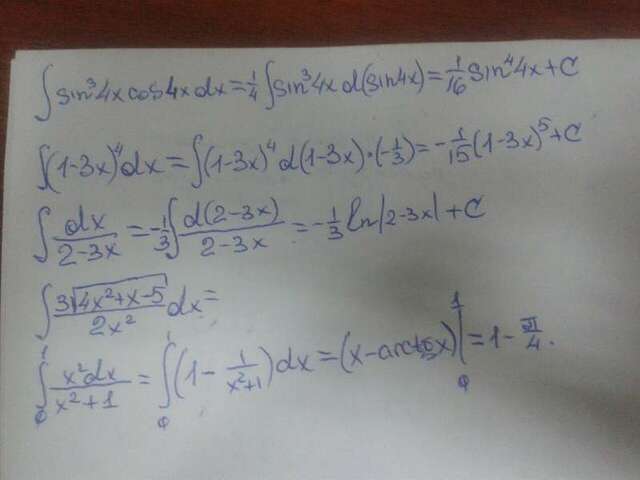 ∫ sin³4x cos4x dx = 1/4 ∫ sin³4x d(sin4x) = 1/16 sin⁴4x + C
∫(1-3x)⁴dx = ∫(1-3x)⁴ d(1-3x)·(-1/3) = -1/15 (1-3x)⁵ + C
∫ dx/(2-3x) = -1/3 ∫ d(2-3x)/(2-3x) = -1/3 ln|2-3x| + C
∫ 3√(4x²+x-5)/(2x²) dx =
∫₀¹ x²dx/(x²+1) = ∫₀¹ (1 - 1/(x²+1)) dx = (x - arctg x)|₀¹ = 1 - π/4.